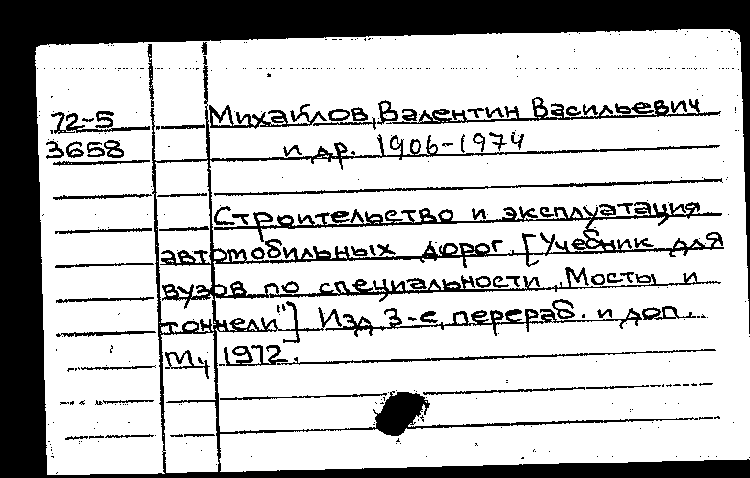 72-5 Михайлов, Валентин Васильевич
3658 и др. 1906-1974
Строительство и эксплуатация
автомобильных дорог. [Учебник для
вузов по специальности „Мосты и
тоннели"] Изд. 3-е, перераб. и доп.
М., 1972.